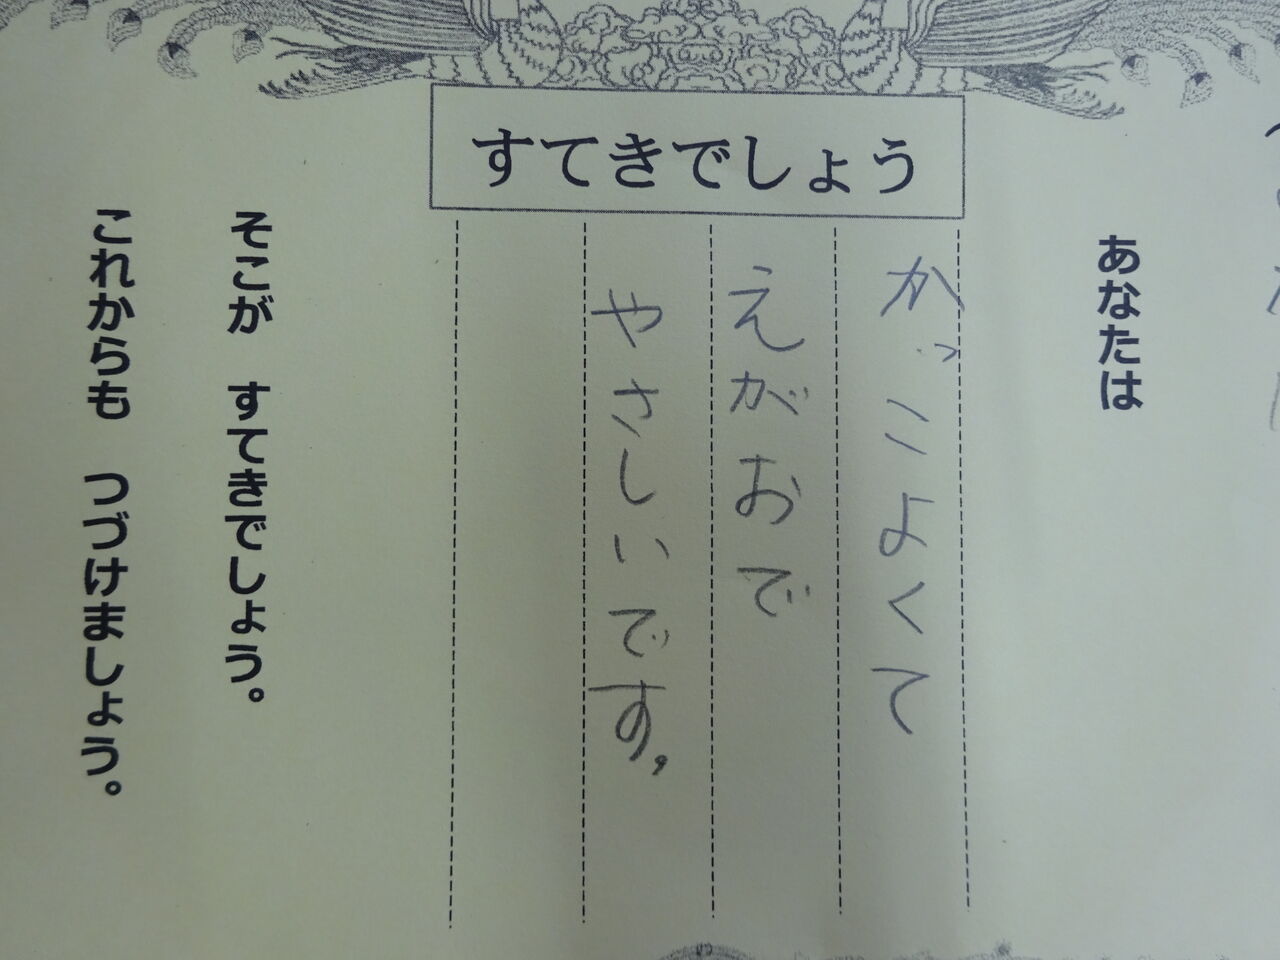 すてきでしょう
あなたは
かっこよくて
えがおで
やさしいです。
そこが すてきでしょう。
これからも つづけましょう。